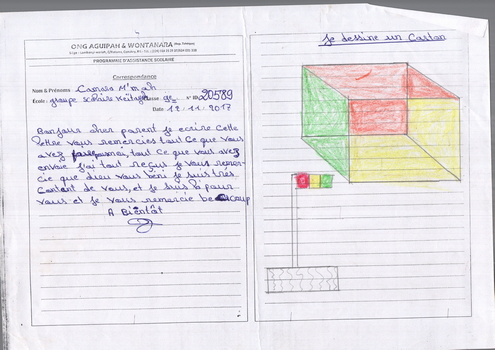 ONG AGUIPAH & WONTANARA
PROGRAMME D'ASSISTANCE SCOLAIRE
Correspondance
Nom & Prénoms : Camara M'mah
École : groupe scolaire Classe N° ID: 20589
Date 12.11.2017
Bonjour cher parent je ecrire cette
lettre vous remercies tout ce que vous
avez tout ce que vous avez
envoie j'ai tout reçus je vous remer-
cie que dieu vous béni je suis très
contant de vous, et je suis là pour
vous et je vous remercie beaucoup
A Bientôt
Je dessine un Carton